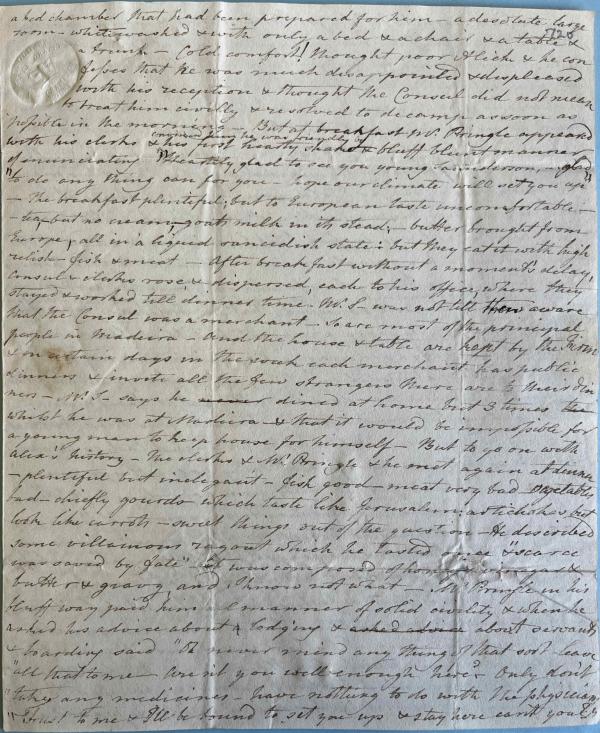 a bed chamber that had been prepared for him - a desolate large
room - whitewashed & with only a bed & a chair & a table &
a trunk - Cold comfort! thought poor Alick & he con
fesses that he was much disappointed & displeased
with his reception & thought the Consul did not mean
to treat him civilly & resolved to decamp as soon as
possible in the morning - But at breakfast Mr. Pringle appeared
with his clerks & his first hearty shake & bluff blunt manner
of enunciating "Heartily glad to see you young Saunderson, - glad
"to do any thing can for you - hope our climate will set you up"
- The breakfast plentiful, but to European taste uncomfortable -
- tea, but no cream, goats milk in its stead, - butter brought from
Europe, all in a liquid rancidish state: but they eat it with high
relish - fish & meat - After breakfast without a moment's delay,
Consul & clerks rose & dispersed, each to his office, where they
stayed & worked till dinner time. Mr. S - was not till then aware
that the Consul was a merchant - So are most of the principal
people in Madeira - And the house & table are kept by the Firm
& on certain days in the week each merchant has public
dinners & invite all the few strangers there are to their din
ners - Mr. S. says he never dined at home but 3 times
whilst he was at Madeira & that it would be impossible for
a young man to keep house for himself - But to go on with
Alick's history - The clerks & Mr. Pringle & he met again at dinner
- plentiful but inelegant - fish good - meat very bad vegetables
bad - chiefly gourds which taste like Jerusalem artichokes but
look like carrots - sweet things out of the question - He described
some villainous ragout which he tasted once & "scarce
was saved by fate" - it was composed of &
butter & gravy and I know not what - Mr. Pringle in his
bluff way paid him all manner of solid civility & when he
asked his advice about a lodging & asked advice about servants
& boarding said "O never mind any thing of that sort leave
"all that to me - Aren't you well enough here? Only don't
"take any medicines - have nothing to do with the physicians
"Trust to me & I'll be bound to set you up & stay here can't you?